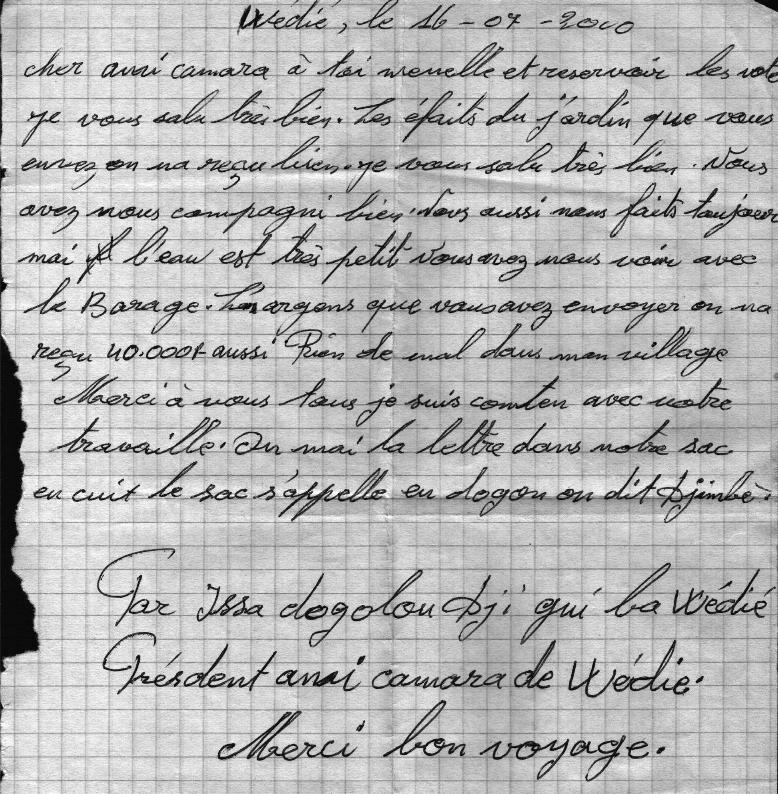 Wédié, le 16-07-2000
cher anicamara à toi menelle et reservoir les vote
ye vous salu très bien. Les éfaits du j'ardin que vous
envez on na reçu bien. ye vous salu très bien. Vous
avez nous compagni bien. Vous aussi nous faits toujour
mai l'eau est très petit vous avez nous voir avec
le Barage. L'argens que vous avez envoyer on na
reçu 40.000f aussi Rien de mal dans mon village
Merci à vous tous je suis comten avec votre
travaille. On mai la lettre dans notre sac
en cuit le sac s'appelle en dogon on dit Djimbè.
Par Issa dogolou Dji gui ba Wédié
Présdent anicamara de Wédié.
Merci bon voyage.